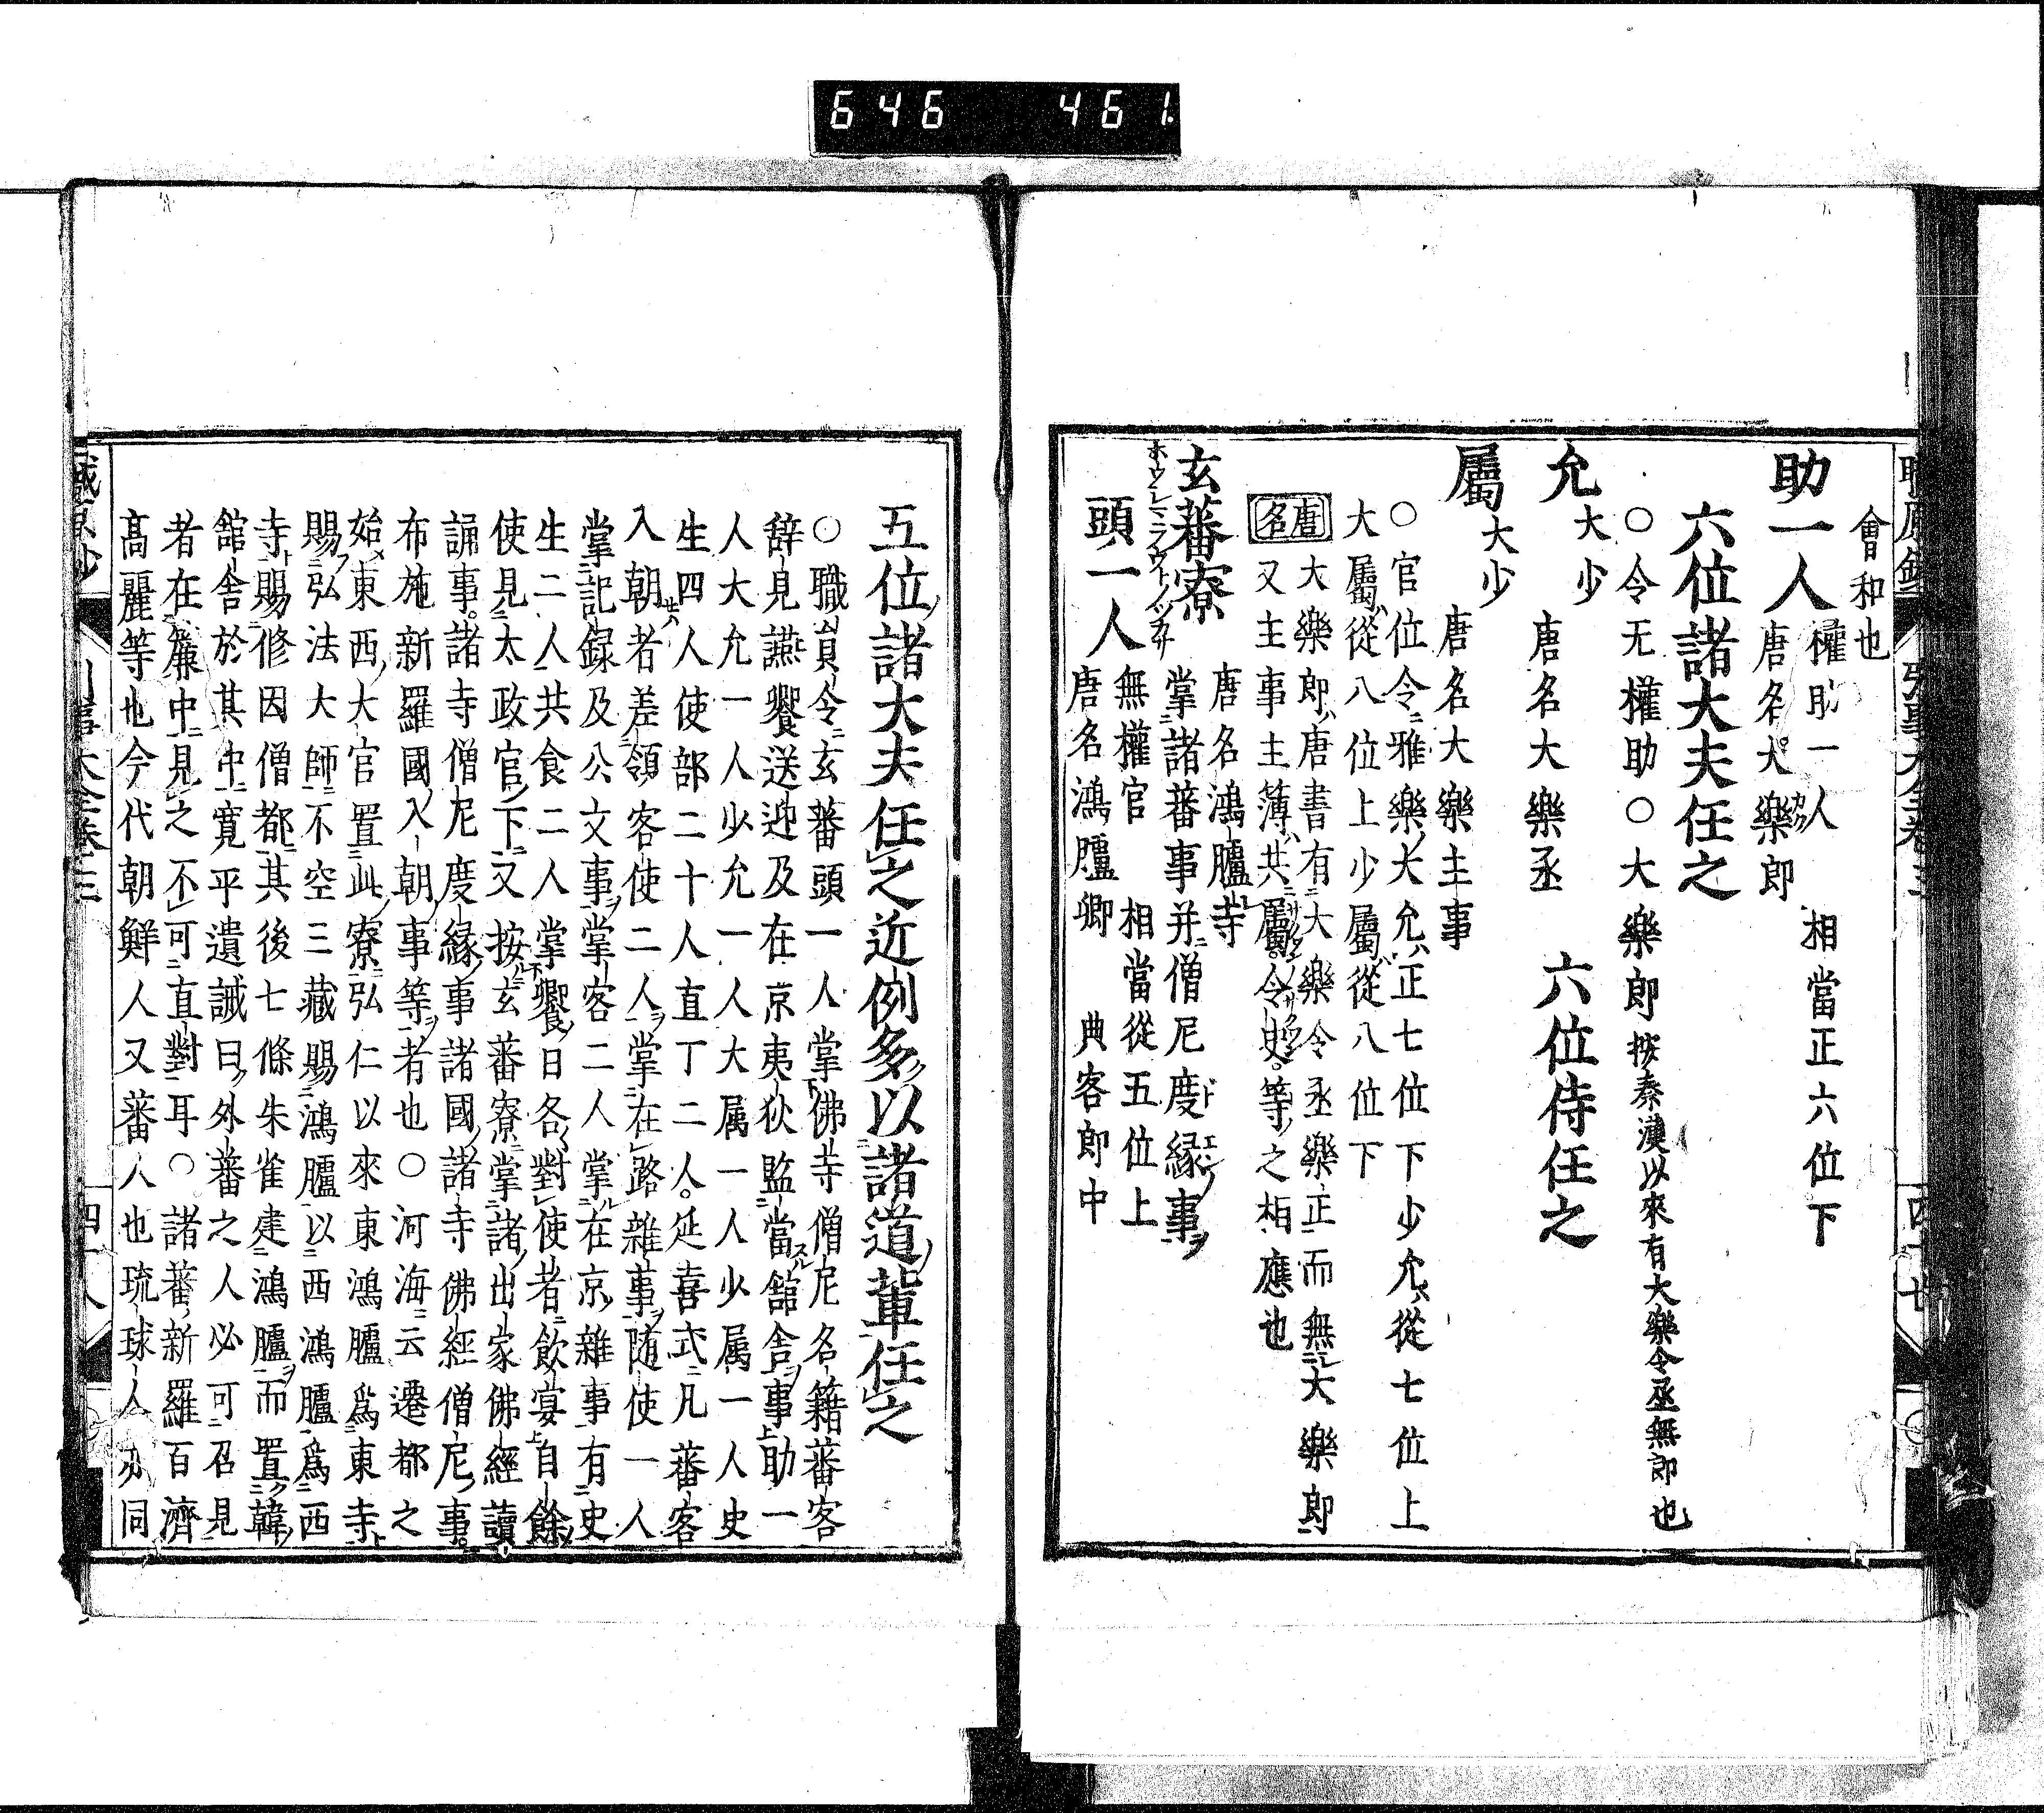 646 461
會和也
助一人 權助一人 相當正六位下
唐名大樂郎
六位諸大夫任之
○令无權助○大樂郎按秦漢以來有大樂令丞無郎也
允 大少 唐名大樂丞 六位侍任之
屬 大少 唐名大樂主事
○官位令雅樂大允正七位下少允從七位上
大屬從八位上少屬從八位下
唐名 大樂郎唐書有大樂令丞樂正而無大樂郎
又主事主薄共屬令史等之相應也
玄蕃寮 唐名鴻臚寺
掌諸蕃事并僧尼度緣事
頭一人 無權官 相當從五位上
唐名鴻臚卿 典客郎中
五位諸大夫任之近例多以諸道輩任之
○職員令玄蕃頭一人掌佛寺僧尼名籍蕃客
辞見讌饗送迎及在京夷狄監當舘舍事助一
人大允一人少允一人大属一人少属一人史
生四人使部二十人直丁二人延喜式凡蕃客
入朝者差領客使二人掌在路雜事随使一人
掌記録及公文事掌客二人掌在京雜事有史
生二人共食二人掌饗日各對使者飲宴自餘
使見太政官下又按玄蕃寮掌諸出家佛經讀
誦事諸寺僧尼度緣事諸國諸寺佛經僧尼事
布施新羅國入朝事等者也○河海云遷都之
始東西大官置此寮弘仁以來東鴻臚爲東寺
賜弘法大師不空三藏賜鴻臚以西鴻臚爲西
寺賜修因僧都其後七條朱雀建鴻臚而置韓
舘舍於其中寬平遺誡曰外蕃之人必可召見
者在簾中見之不可直對耳○諸蕃新羅百濟
高麗等也今代朝鮮人又蕃人也琉球人亦同